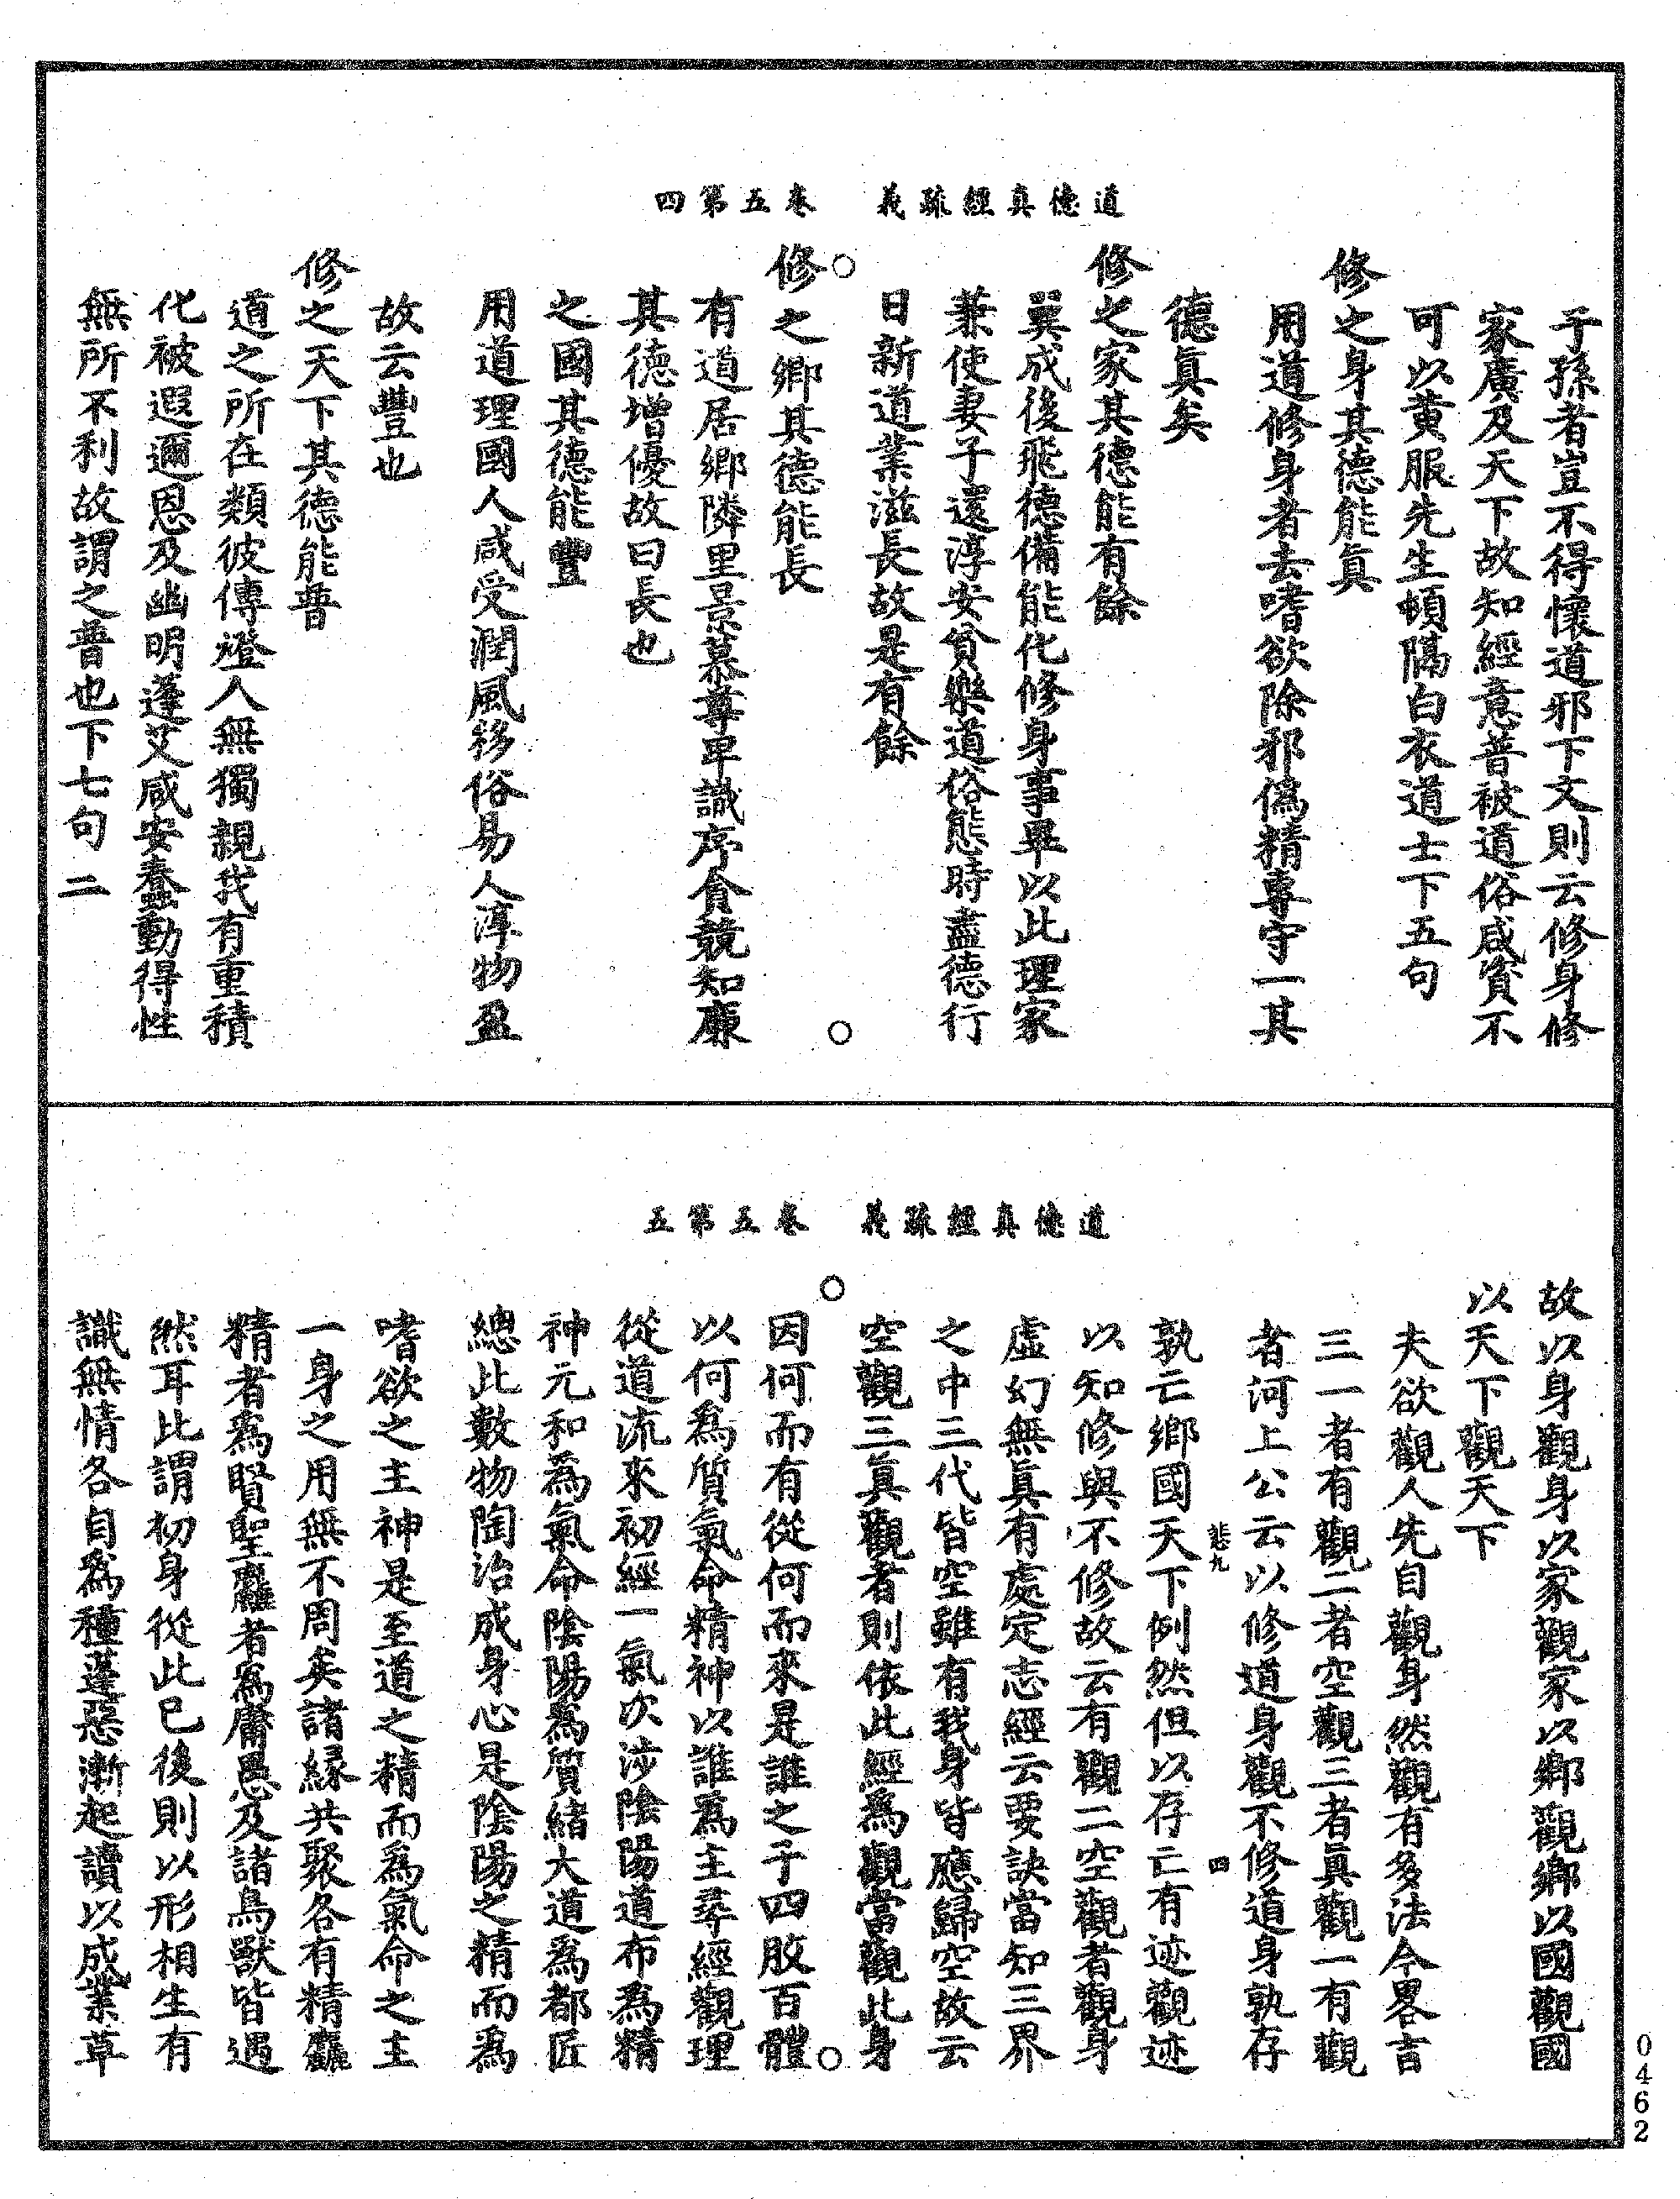 道德真經疏義　卷五第四
子孫者豈不得懷道邪下文則云修身修
家廣及天下故知經意普被道俗咸資不
可以黃服先生頓隔白衣道士下五句
修之身其德能眞
用道修身者去嗜欲除邪僞精專守一其
德眞矣
修之家其德能有餘
翼成後飛德備能化修身事畢以此理家
兼使妻子還淳安貧樂道俗態時盡德行
日新道業滋長故是有餘
修之鄉其德能長
有道居鄉隣里景慕尊卑識序貪競知廉
其德增優故曰長也
之國其德能豐
用道理國人咸受潤風移俗易人淳物盈
故云豐也
修之天下其德能普
道之所在類彼傳燈人無獨親我有重積
化被遐邇恩及幽明蓬艾咸安蠢動得性
無所不利故謂之普也下七句二
道德真經疏義　卷五第五
故以身觀身以家觀家以鄉觀鄉以國觀國
以天下觀天下
夫欲觀人先自觀身然觀有多法今畧言
三一者有觀二者空觀三者眞觀一有觀
者河上公云以修道身觀不修道身孰存
悲九　四
孰亡鄉國天下例然但以存亡有迹觀迹
以知修與不修故云有觀二空觀者觀身
虛幻無眞有處定志經云要訣當知三界
之中三代皆空雖有我身皆應歸空故云
空觀三眞觀者則依此經爲觀當觀此身
因何而有從何而來是誰之子四肢百體
以何爲質氣命精神以誰爲主尋經觀理
從道流來初經一氣次涉陰陽道布爲精
神元和爲氣命陰陽爲質緒大道爲都匠
總此數物陶冶成身心是陰陽之精而爲
嗜欲之主神是至道之精而爲氣命之主
一身之用無不周矣諸緣共聚各有精麤
精者爲賢聖麤者爲庸愚及諸鳥獸皆遇
然耳此謂初身從此已後則以形相生有
識無情各自爲種蓬惡漸起讀以成業草
0462